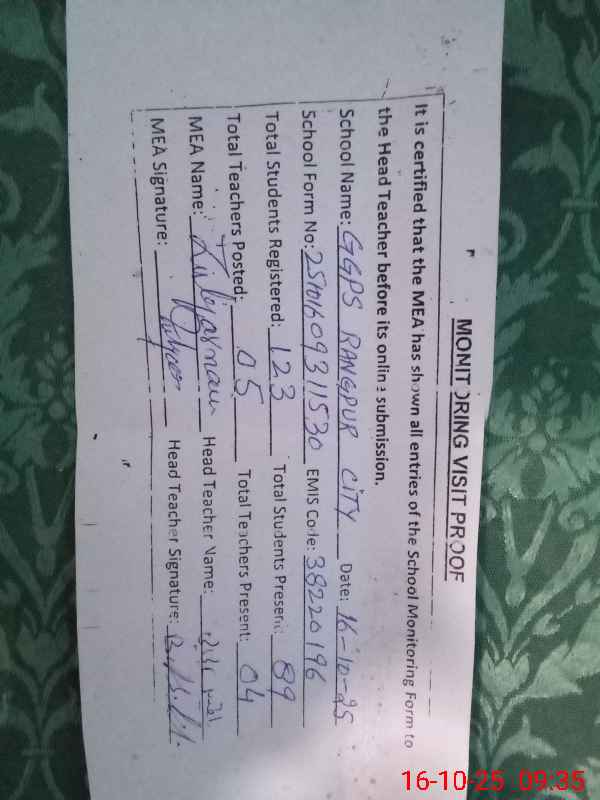 MONITORING VISIT PROOF
It is certified that the MEA has shown all entries of the School Monitoring Form to
the Head Teacher before its online submission.
School Name: GGPS RANGPUR CITY Date: 16-10-25
School Form No: 25101609311530 EMIS Code: 38220196
Total Students Registered: 123 Total Students Present: 89
Total Teachers Posted: 05 Total Teachers Present: 04
MEA Name: Head Teacher Name:
MEA Signature: Head Teacher Signature:
16-10-25 09:35